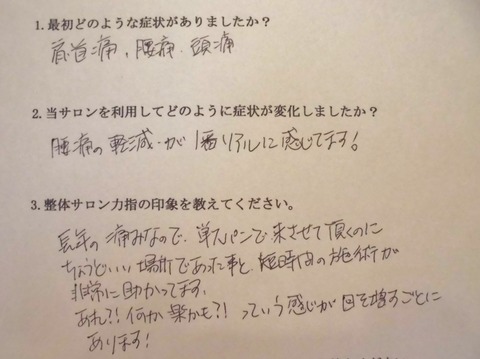 1.最初どのような症状がありましたか?
肩首痛、腰痛、頭痛
2.当サロンを利用してどのように症状が変化しましたか?
腰痛の軽減が1番リアルに感じてます!
3.整体サロン力指の印象を教えてください。
長年の痛みなので、単スパンで来させて頂くのに
ちょうどいい場所であった事と、短時間のお施術が
非常に助かってます。
あれ?!何か楽かも?!っていう感じが回を増すごとに
あります!